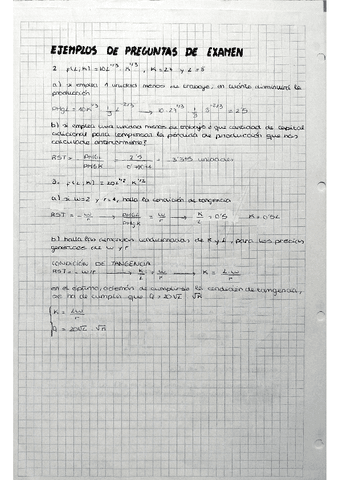 EJEMPLOS DE PREGUNTAS DE EXAMEN
2. F(L, K) = 10L^1/3 · K^1/3, K = 27 y L = 8
a) si emplea 1 unidad menos de trabajo, en cuánto disminuirá la
producción
PMgL = 10K^1/3 · 1/3 L^-2/3 → 10·27^1/3 · 1/3 · 8^-2/3 = 2'5
b) si emplea una unidad menos de trabajo que cantidad de capital
adicional para compensar la pérdida de producción que has
calculado anteriormente?
RST = PMgL / PMgK = 2'5 / = 3'375 unidades
3. F(L, K) = 20L^1/2 K^1/2
a) si w=2 y r=4, halla la condición de tangencia
RST = - w/r → PMgL / PMgK = w/r → K/L = 0'5 K = 0'5L
b) halla las demandas condicionadas de K y L, para los precios
genéricos de w y r
CONDICIÓN DE TANGENCIA
RST = - w/r → K/L = w/r → K = L·w / r
en el óptimo, además de cumplirse la condición de tangencia,
se ha de cumplir que Q = 20√L · √K
K = L·w / r
Q = 20√L · √K